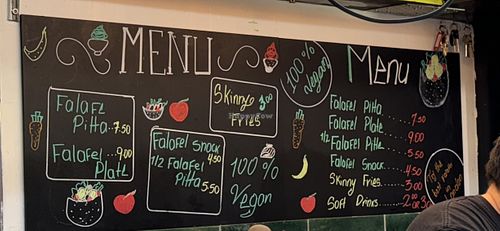 MENU
Falafl
Pitta 7.50
Falafel 9.00
Plate
Skinny 3.00
Fries
HappyCow
Falafel Snack
4.50
1/2 Falafel
Pitta 5.50
100%
Vegan
100%
Vegan
Menu
Falafel Pitta ... 7.50
Falafel Plate ... 9.00
1/2 Falafel Pitta ... 5.50
Falafel Snack ... 4.50
Skinny Fries ... 3.00
Soft Drinks ... 2.00 OR 3
Try the